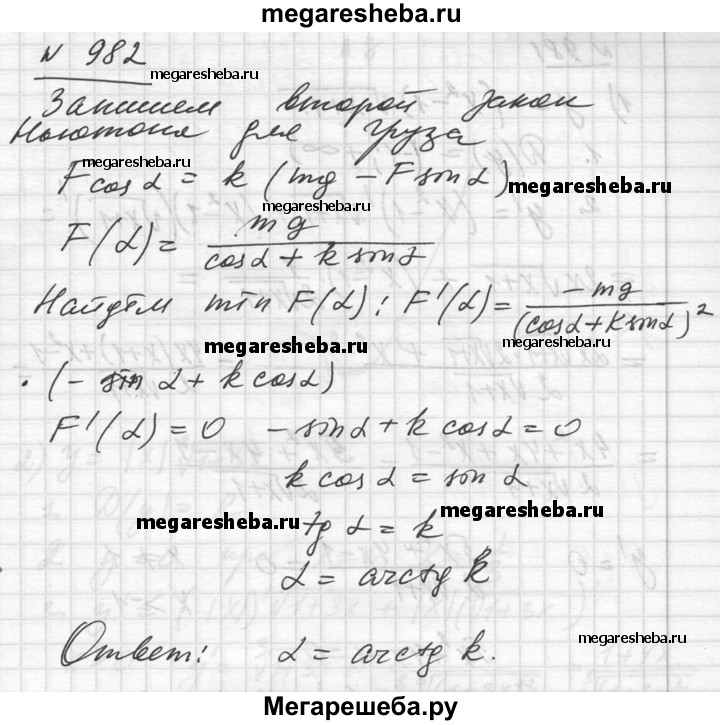 megaresheba.ru
N 982
megaresheba.ru
Запишем второй закон
Ньютона для груза
megaresheba.ru
F cos α = k (mg − F sin α)
megaresheba.ru
megaresheba.ru
F(α) = mg / (cos α + k sin α)
Найдём min F(α): F'(α) = −mg / (cos α + k sin α)²
megaresheba.ru
megaresheba.ru
· (− sin α + k cos α)
F'(α) = 0 − sin α + k cos α = 0
k cos α = sin α
megaresheba.ru
tg α = k
megaresheba.ru
α = arctg k
Ответ: α = arctg k.
megaresheba.ru
Мегарешеба.ру